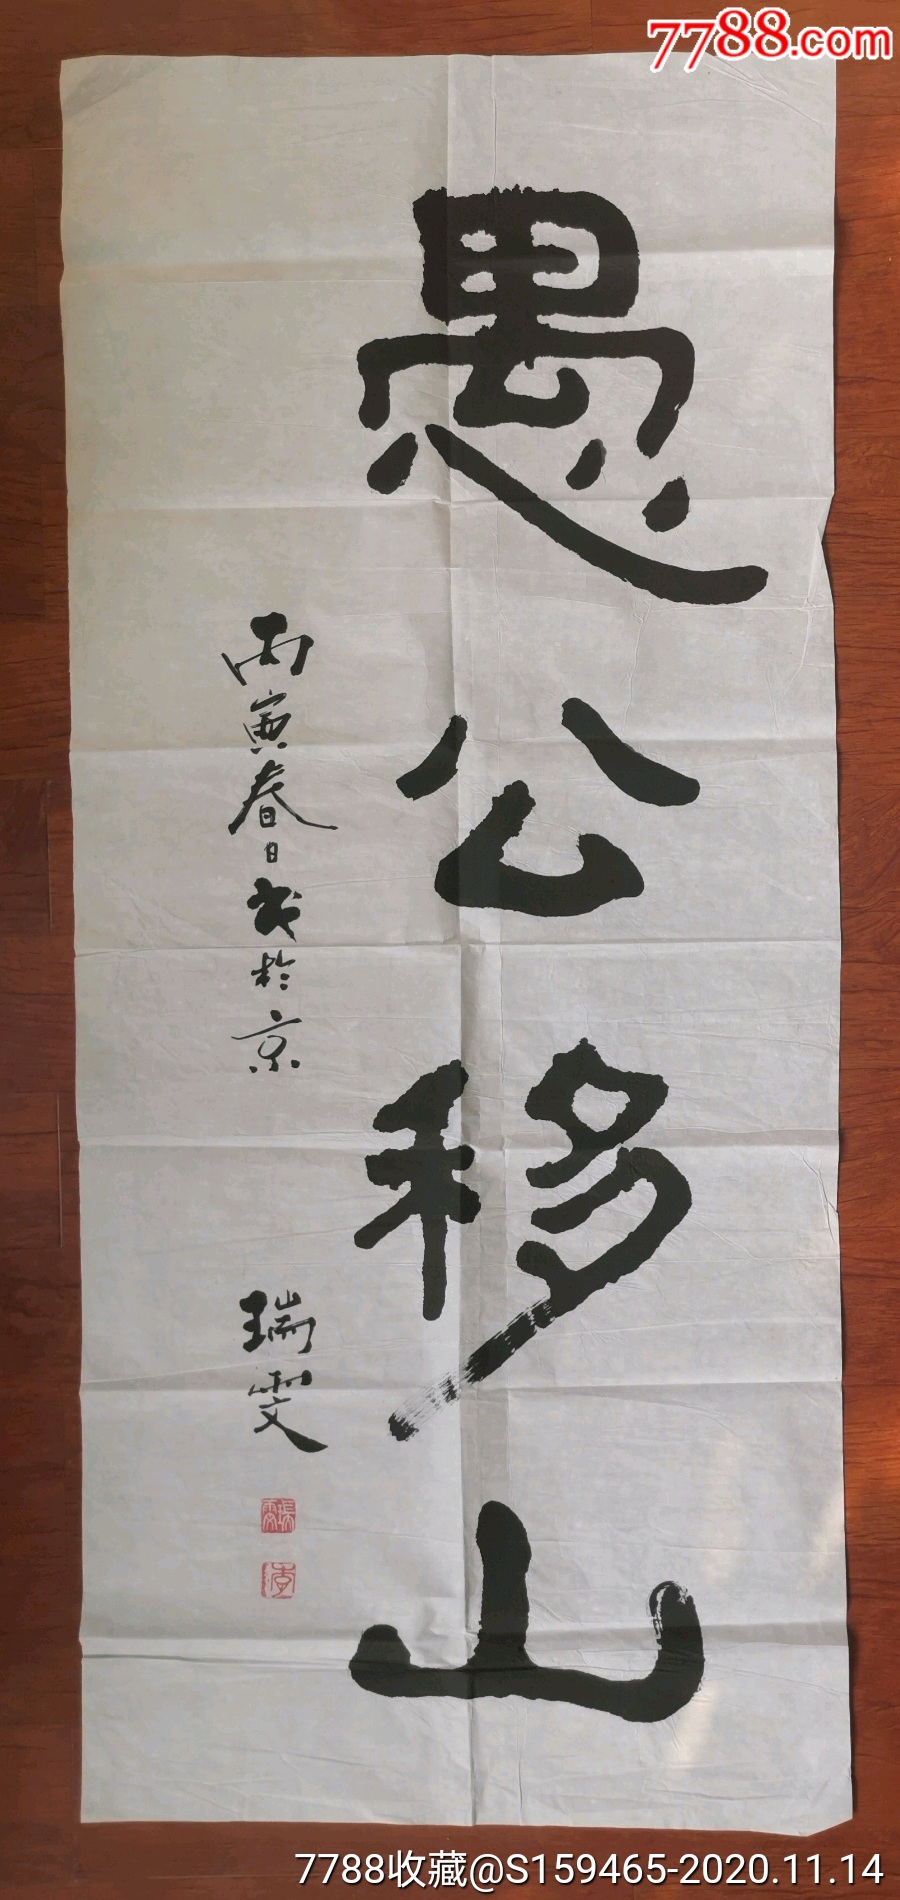 7788.com
愚公移山
丙寅春日戏於京
瑞雯
7788收藏@S159465-2020.11.14